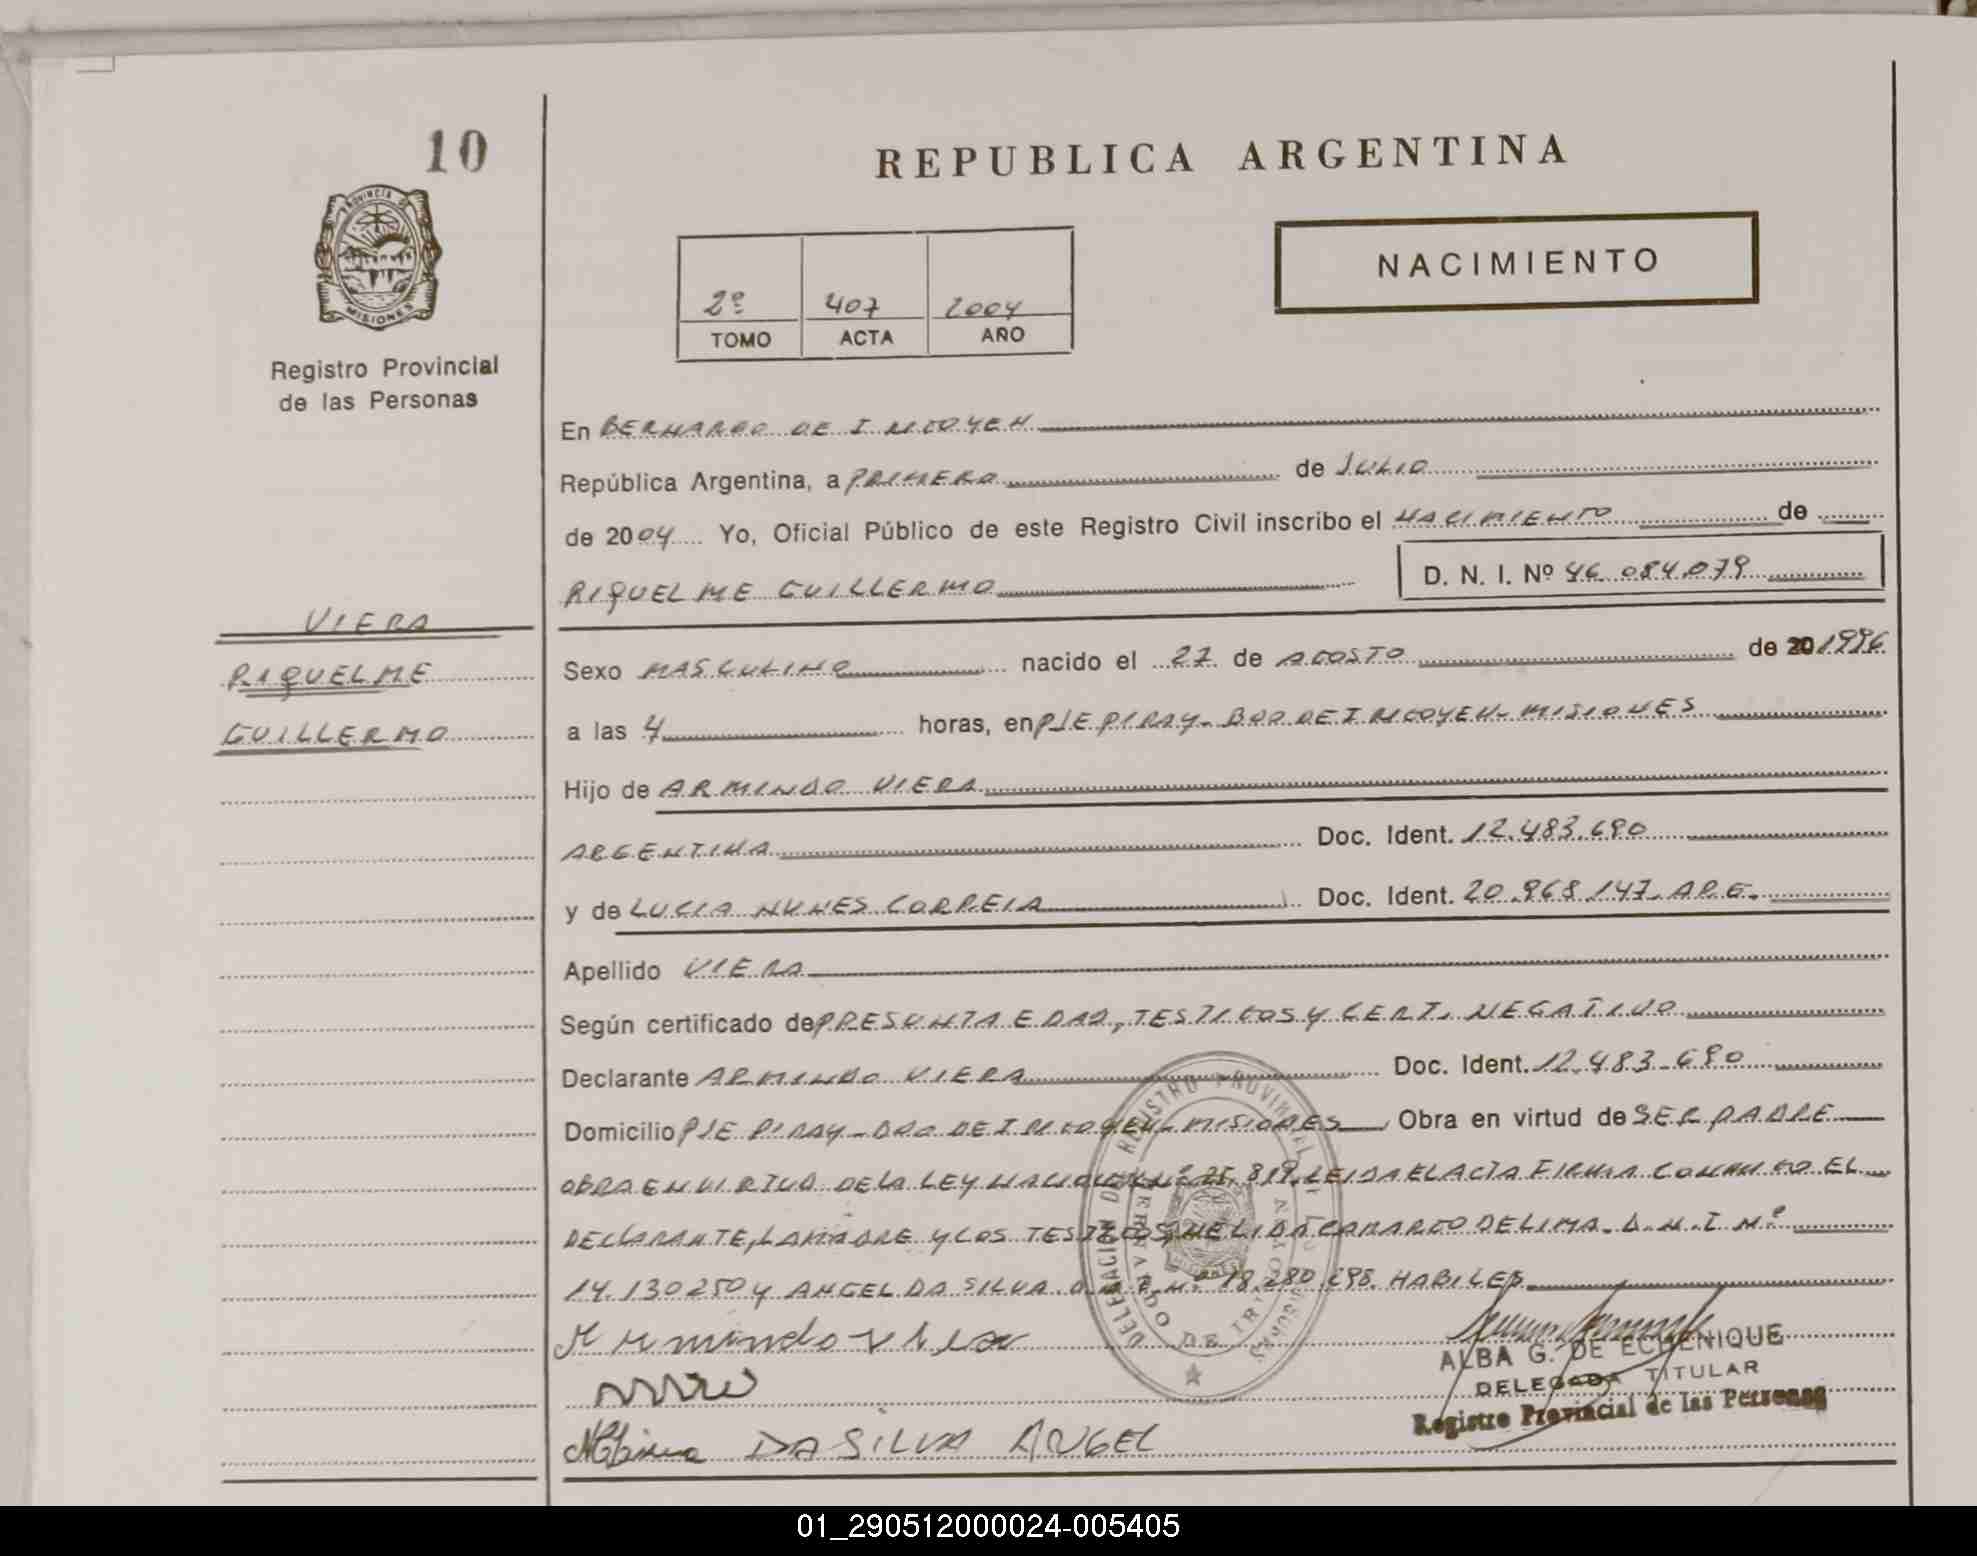 10
PROVINCIA DE
MISIONES
Registro Provincial
de las Personas
REPUBLICA ARGENTINA
NACIMIENTO
2º 407 2004
TOMO ACTA AÑO
En BERNARDO DE IRIGOYEN
República Argentina, a PRIMERO de JULIO
de 2004 Yo, Oficial Público de este Registro Civil inscribo el NACIMIENTO de
RIQUELME GUILLERMO D. N. I. Nº 46.084.079
VIERA
RIQUELME
GUILLERMO
Sexo MASCULINO nacido el 27 de AGOSTO de 20 1996
a las 4 horas, en PJE PIRAY- BDO DE IRIGOYEN- MISIONES
Hijo de ARMINDO VIERA
ARGENTINA Doc. Ident. 12.483.690
y de LUCIA NUNES CORREIA Doc. Ident. 20.968.147. ARG.
Apellido VIERA
Según certificado de PRESUNTA EDAD, TESTIGOS Y CERT. NEGATIVO
Declarante ARMINDO VIERA Doc. Ident. 12.483.690
Domicilio PJE PIRAY- BDO DE IRIGOYEN- MISIONES Obra en virtud de SER PADRE
OBRA EN VIRTUD DE LA LEY NACIONAL Nº 25.819. LEIDA EL ACTA FIRMA CONMIGO EL
DECLARANTE, LA MADRE Y LOS TESTIGOS, NELIDA CAMARGO DE LIMA. D.N.I Nº
14.130250 Y ANGEL DA SILVA. D.N.I. Nº 18.280.698. HABILES
Armindo viera
DA SILVA ANGEL
ALBA G. DE ECHENIQUE
DELEGADA TITULAR
Registro Provincial de las Personas
DELEGACION DEL REGISTRO PROVINCIAL
BERNARDO DE IRIGOYEN
MISIONES
01_290512000024-005405